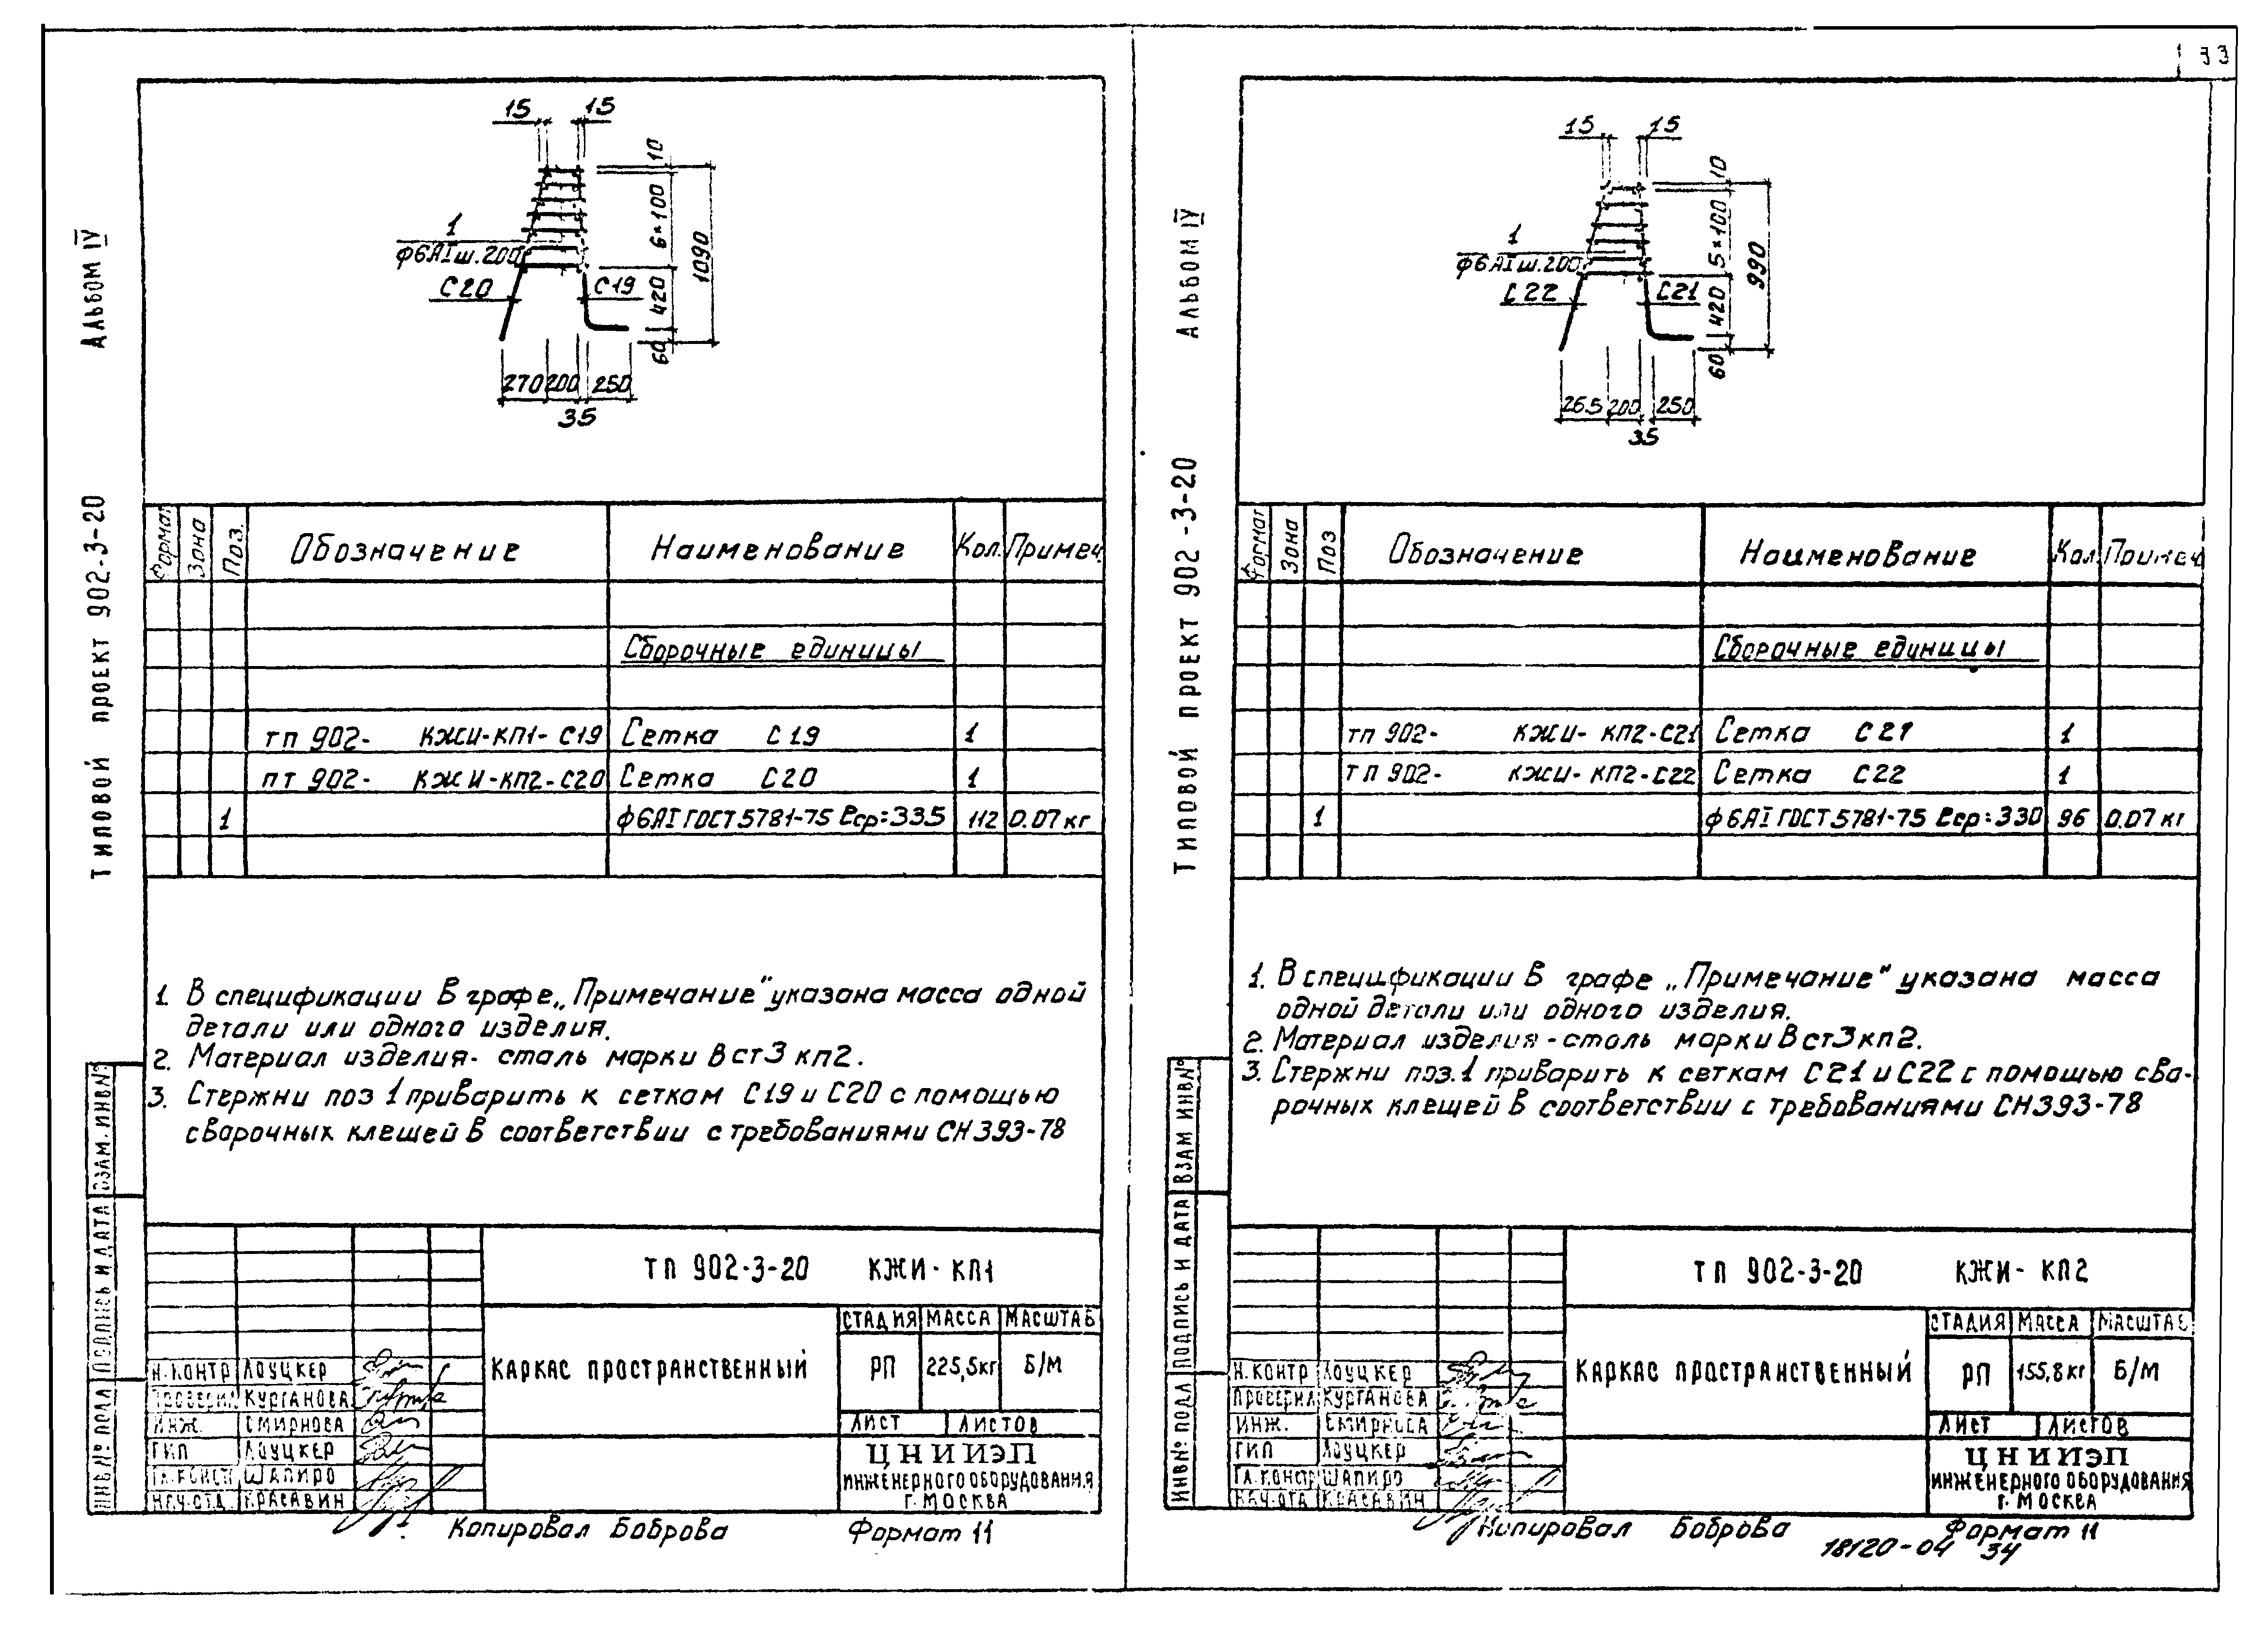 33
АЛЬБОМ IV
ТИПОВОЙ ПРОЕКТ 902-3-20
15 15
10
6×100
1090
420
60
1
ф6АIш.200
С20 С19
270 200 250
35
Формат Зона Поз. Обозначение Наименование Кол. Примеч.
Сборочные единицы
тп 902- КЖИ-КП1-С19 Сетка С19 1
пт 902- КЖИ-КП2-С20 Сетка С20 1
1 ф6АI ГОСТ 5781-75 ℓср=335 112 0.07 кг
1. В спецификации в графе „Примечание" указана масса одной
детали или одного изделия.
2. Материал изделия- сталь марки Вст3 кп2.
3. Стержни поз 1 приварить к сеткам С19 и С20 с помощью
сварочных клещей в соответствии с требованиями СН 393-78
ИНВ№ ПОДЛ ПОДПИСЬ И ДАТА ВЗАМ. ИНВ№
ТП 902-3-20 КЖИ-КП1
КАРКАС ПРОСТРАНСТВЕННЫЙ
СТАДИЯ МАССА МАСШТАБ
РП 225,5кг Б/М
ЛИСТ ЛИСТОВ
Н.КОНТР ЛОУЦКЕР
ПРОВЕРИЛ КУРГАНОВА
ИНЖ. СМИРНОВА
ГИП ЛОУЦКЕР
ГЛ.КОНСТР ШАПИРО
НАЧ.ОТД. КРАСАВИН
ЦНИИЭП
ИНЖЕНЕРНОГО ОБОРУДОВАНИЯ
Г. МОСКВА
Копировал Боброва Формат 11
АЛЬБОМ IV
ТИПОВОЙ ПРОЕКТ 902-3-20
15 15
10
5×100
990
420
60
1
ф6АIш.200
С22 С21
265 200 250
35
Формат Зона Поз Обозначение Наименование Кол. Примеч
Сборочные единицы
тп 902- КЖИ-КП2-С21 Сетка С21 1
тп 902- КЖИ-КП2-С22 Сетка С22 1
1 ф6АI ГОСТ 5781-75 ℓср=330 96 0.07 кг
1. В спецификации в графе „Примечание" указана масса
одной детали или одного изделия.
2. Материал изделия - сталь марки Вст3кп2.
3. Стержни поз.1 приварить к сеткам С21 и С22 с помощью сва-
рочных клещей в соответствии с требованиями СН393-78
ИНВ№ ПОДЛ ПОДПИСЬ И ДАТА ВЗАМ ИНВ№
ТП 902-3-20 КЖИ-КП2
КАРКАС ПРОСТРАНСТВЕННЫЙ
СТАДИЯ МАССА МАСШТАБ
РП 155,8кг Б/М
ЛИСТ ЛИСТОВ
Н.КОНТР ЛОУЦКЕР
ПРОВЕРИЛ КУРГАНОВА
ИНЖ. СМИРНОВА
ГИП ЛОУЦКЕР
ГЛ.КОНСТР ШАПИРО
НАЧ.ОТД КРАСАВИН
ЦНИИЭП
ИНЖЕНЕРНОГО ОБОРУДОВАНИЯ
Г. МОСКВА
Копировал Боброва Формат 11
18120-04 34